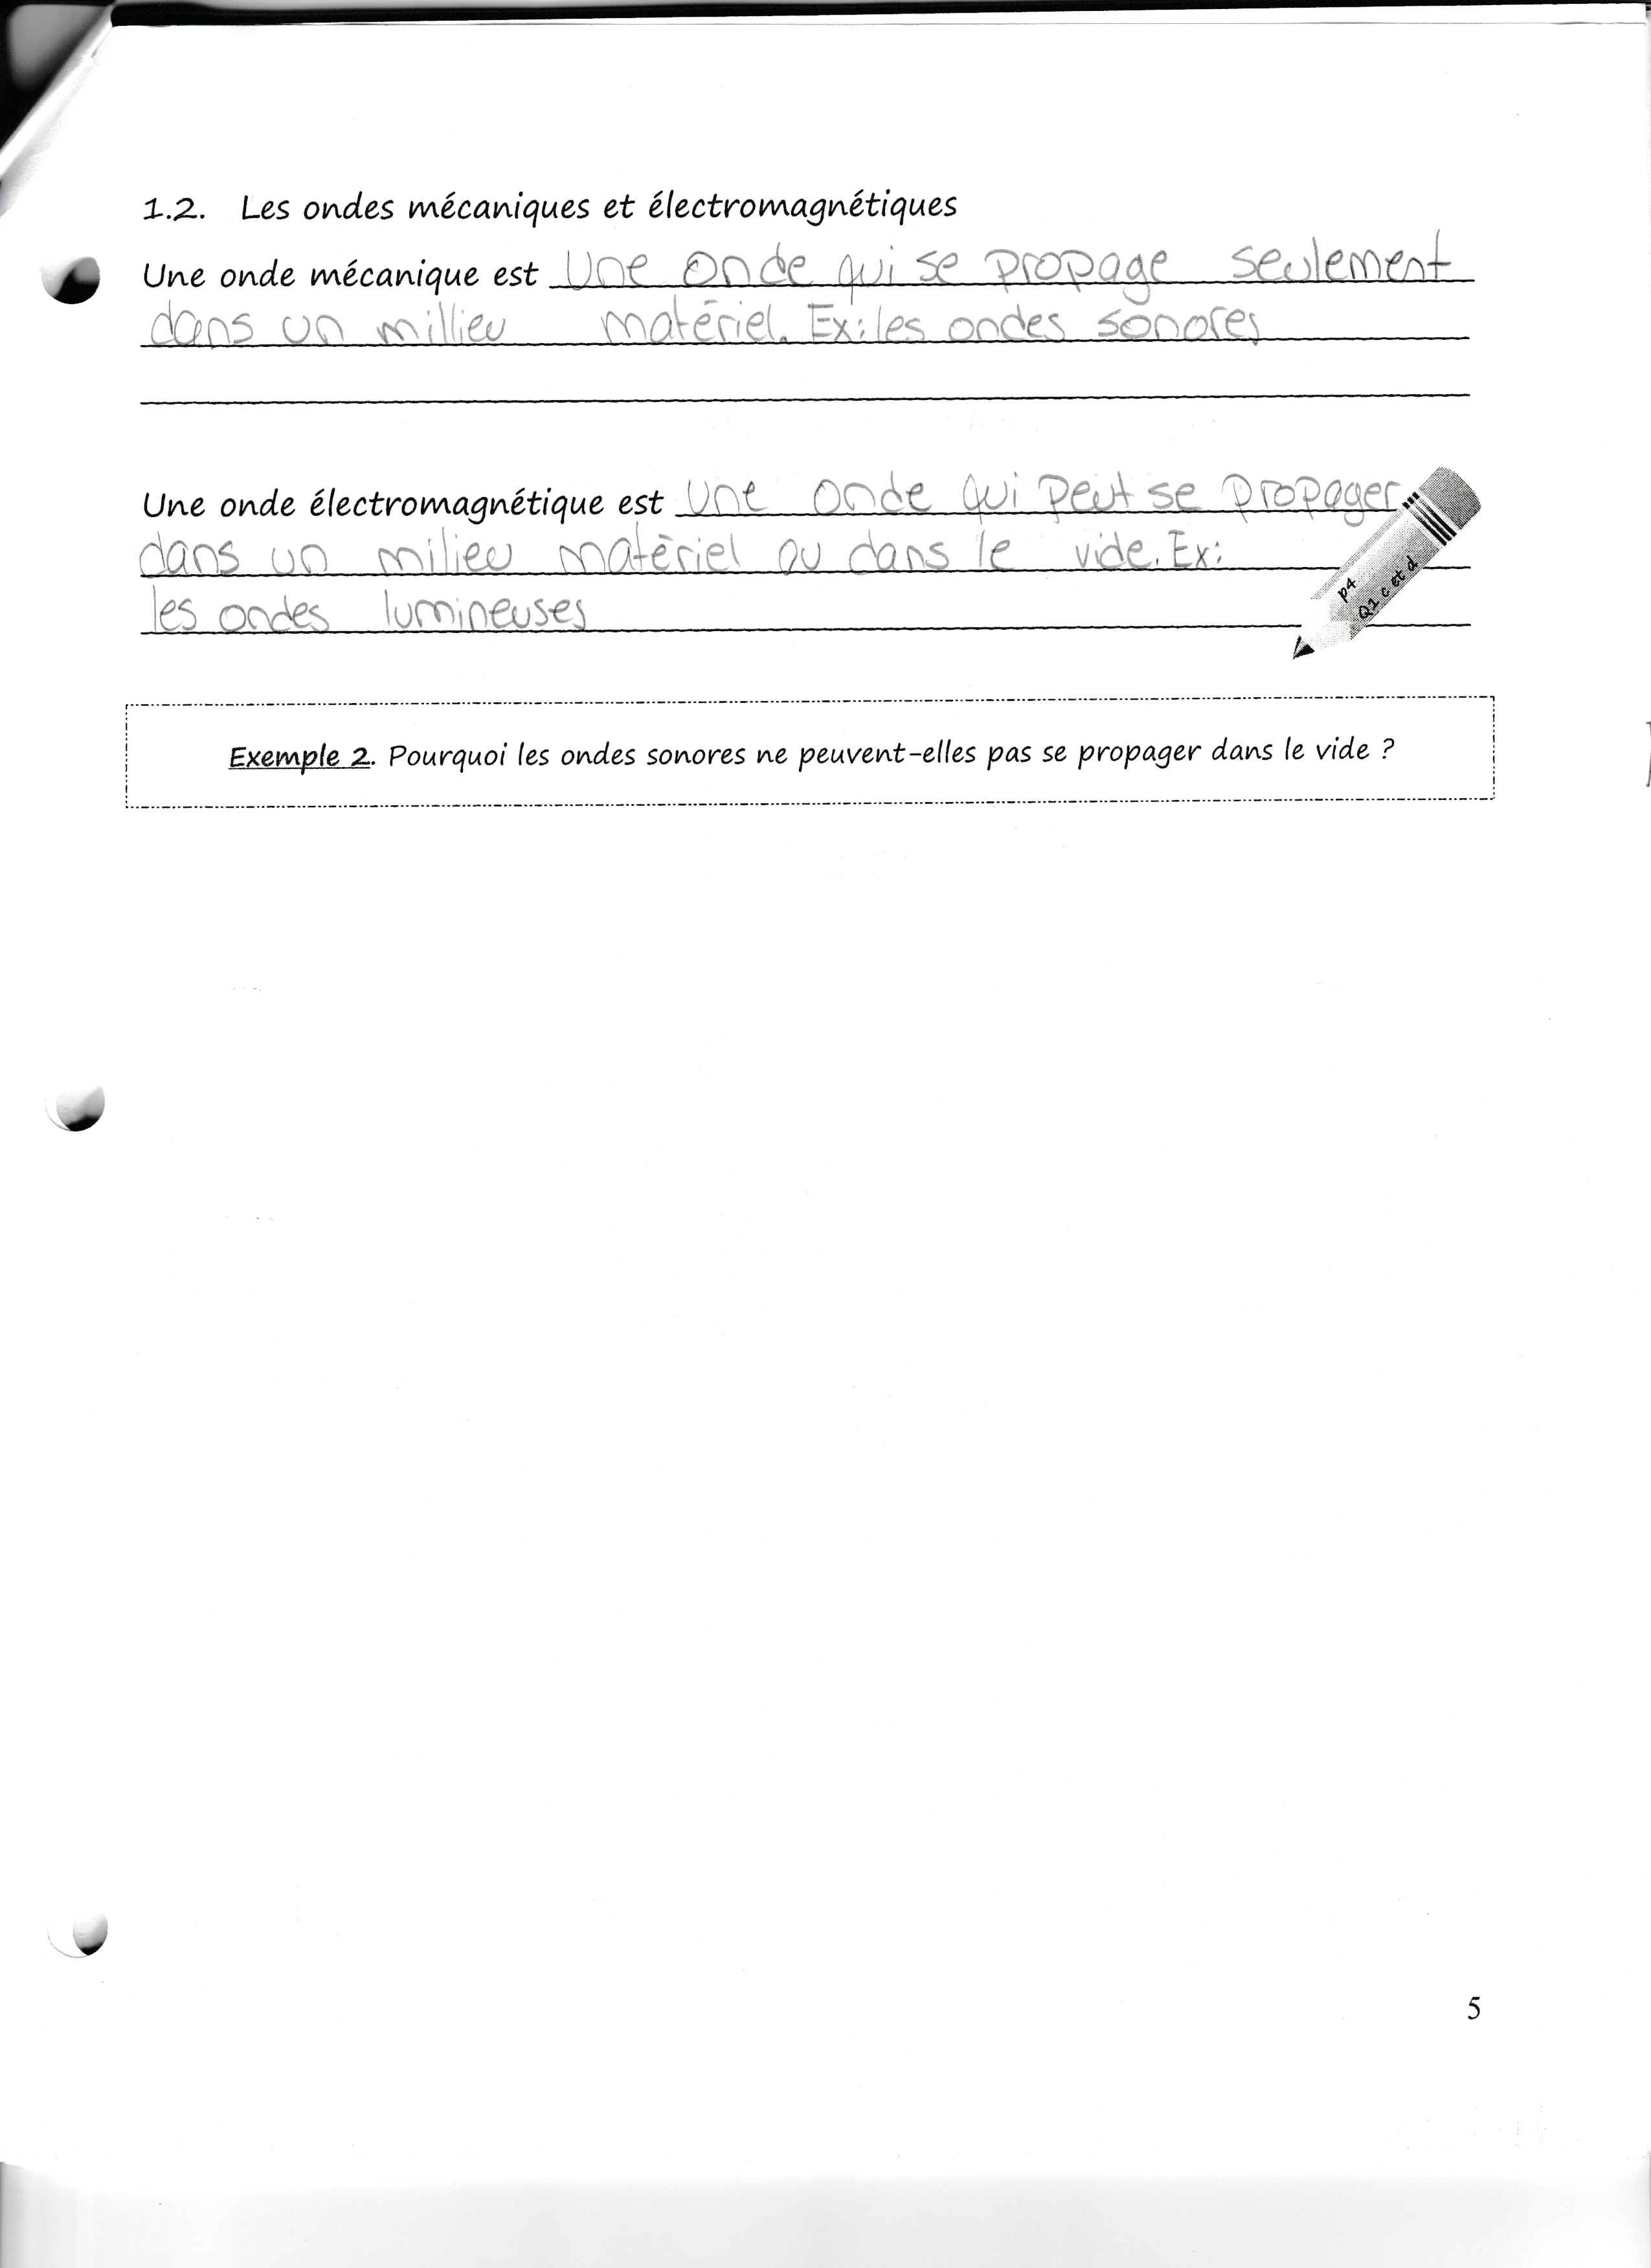 1.2. Les ondes mécaniques et électromagnétiques
Une onde mécanique est Une onde qui se propage seulement
dans un millieu matériel. Ex: les ondes sonores
Une onde électromagnétique est une onde qui peut se propager
dans un milieu matériel ou dans le vide. Ex:
les ondes lumineuses
p4
Q1 c et d
Exemple 2. Pourquoi les ondes sonores ne peuvent-elles pas se propager dans le vide ?
5